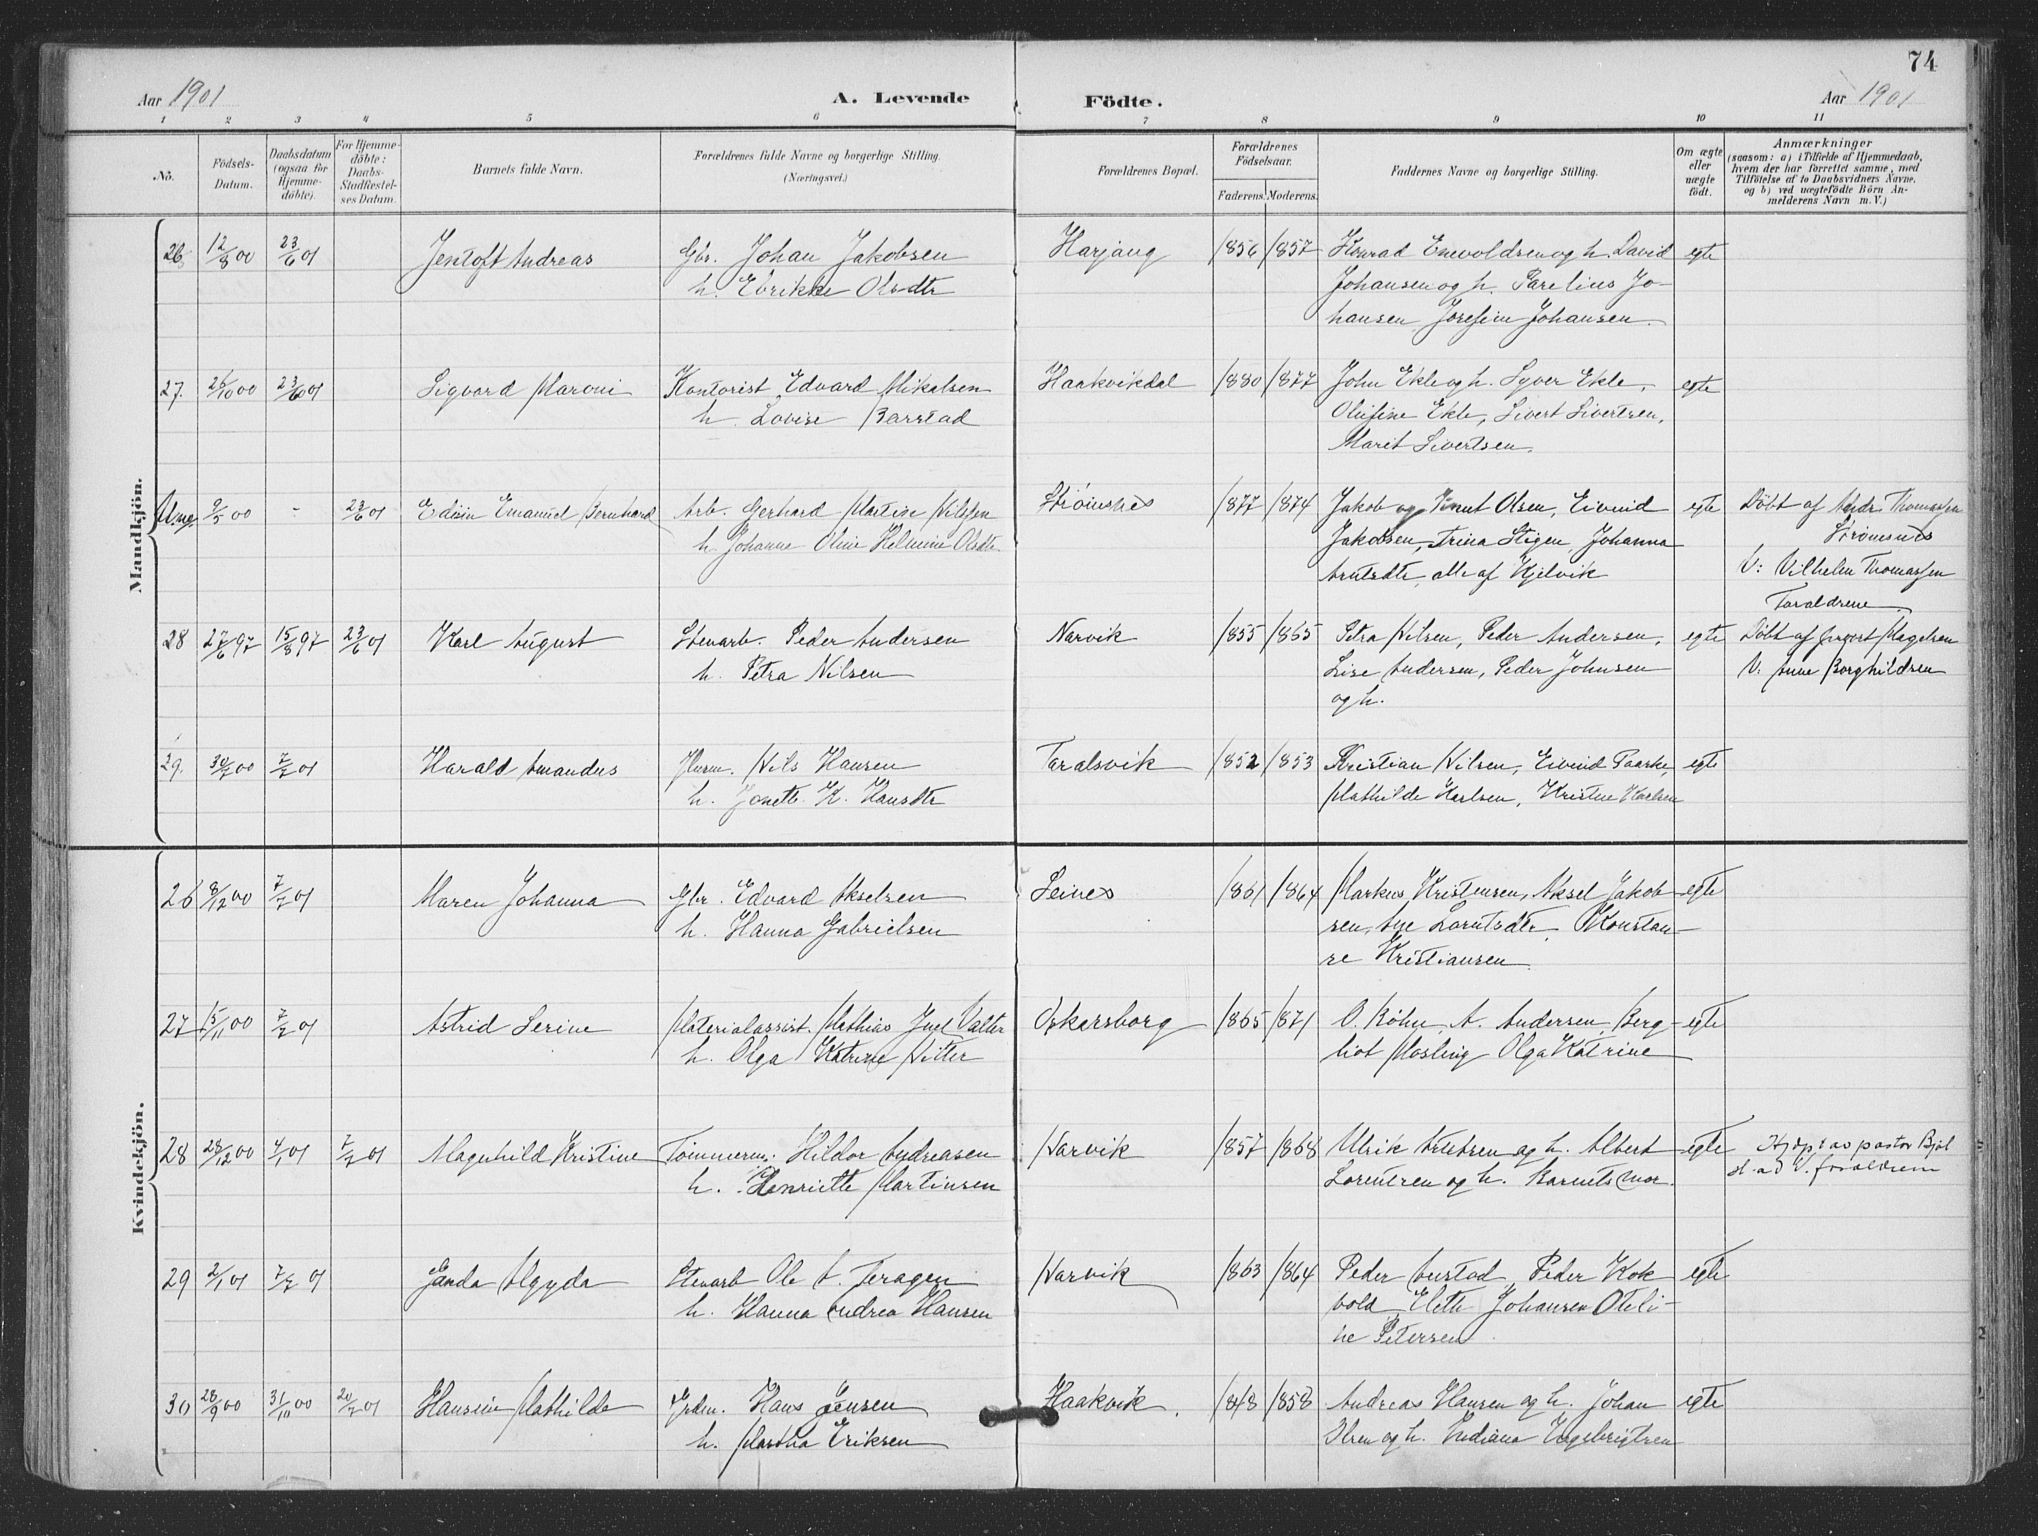 74
Aar 1901 A. Levende Födte. Aar 1901
1 2 3 4 5 6 7 8 9 10 11
No. Födsels-Datum. Daabsdatum (ogsaa for Hjemmedöbte). For Hjemmedöbte: Daabs-Stadfæstelses Datum. Barnets fulde Navn. Forældrenes fulde Navne og borgerlige Stilling. (Næringsvei.) Forældrenes Bopæl. Forældrenes Födselsaar. Faderens. Moderens. Faddernes Navne og borgerlige Stilling. Om ægte eller uægte födt. Anmærkninger
(saasom: a) i Tilfælde af Hjemmedaab,
hvem der har forrettet samme, med
Tilföielse af to Daabsvidners Navne,
og b) ved uægtefödte Börn Anmelderens Navn m. V.)
Mandkjön.
26 12/8 00 23/6 01 Jentoft Andreas Gbr. Johan Jakobsen Harjang 1856 1857 Konrad Enevoldsen og h. David egte
h. Ebrikke Olsdtr Johansen og h. Parelius Jo-
hansen Josefine Johansen
27. 26/10 00 23/6 01 Sigvard Maroni Kontorist Edvard Mikalsen Haakvikdal 1880 1877 John Ekle og h. Syver Ekle, egte
h. Lovise Barstad Olufine Ekle, Sivert Sivertsen,
Marit Sivertsen.
9/5 00 - 23/6 01 Edvin Emanuel Bernhard Arb. Gerhard Martin Nilssen Strömsnes 1877 1874 Jakob og Knut Olsen, Eivind egte Döbt af Thomassen
h. Johanna Oline Helmine Olsdtr. Jakobsen, Trina Stigen, Johanna Strömsnes
Arntsdtr, alle af Kjelvik V: Vilhelm Thomassen
Foraldrene
28 27/6 97 15/8 97 23/6 01 Karl August Stenarb. Peder Andersen Narvik 1855 1865 Petra Nilsen, Peder Andersen, egte Döbt af Magelsen
h. Petra Nilsen Lise Andersen, Peder Johnsen V: Anne Borghildsen
og h.
29. 30/7 00 7/7 01 Harald Amandus Husm. Nils Hansen Taralsvik 1852 1853 Kristian Nilsen, Eivind Paarke, egte
h. Jonette K. Hansdtr Mathilde Karlsen, Kristine Karlsen
Kvindekjön.
26 8/12 00 7/7 01 Maren Johanna Gbr. Edvard Akselsen Leines 1861 1864 Markus Kristensen, Aksel Jakob- egte
h. Hanna Gabrielsen sen, Ane Lorntsdtr, Konstan-
se Kristiansen
27 15/11 00 7/7 01 Astrid Serine Materialassist. Mathias Juel Valter Oskarsborg 1865 1871 O. Köhn, A. Andersen, Berg- egte
h. Olga Katrine Vitter liot Mosling Olga Katrine
28 28/12 00 4/1 01 7/7 01 Magnhild Kristine Tömmerm. Hildor Andreasen Narvik 1857 1868 Ulrik Arntsen og h. Albert egte Hjdpt av pastor
h. Henriette Martinsen Lorentzen og h. Barnets mor. V. foraldrene
29 2/1 01 7/7 01 Ganda Algyda Stenarb Ole A. Teragen Narvik 1863 1864 Peder Austad, Peder Kok egte
h. Hanna Andrea Hansen vold, Elette Johansen Oteli-
ne Petersen
30 28/9 00 31/10 00 20/7 01 Hansine Mathilde Grdm. Hans Jensen Haakvik. 1848 1858 Andreas Hansen og h. Johan egte
h. Martha Eriksen Olsen og h. Indiana Engebrigtsen